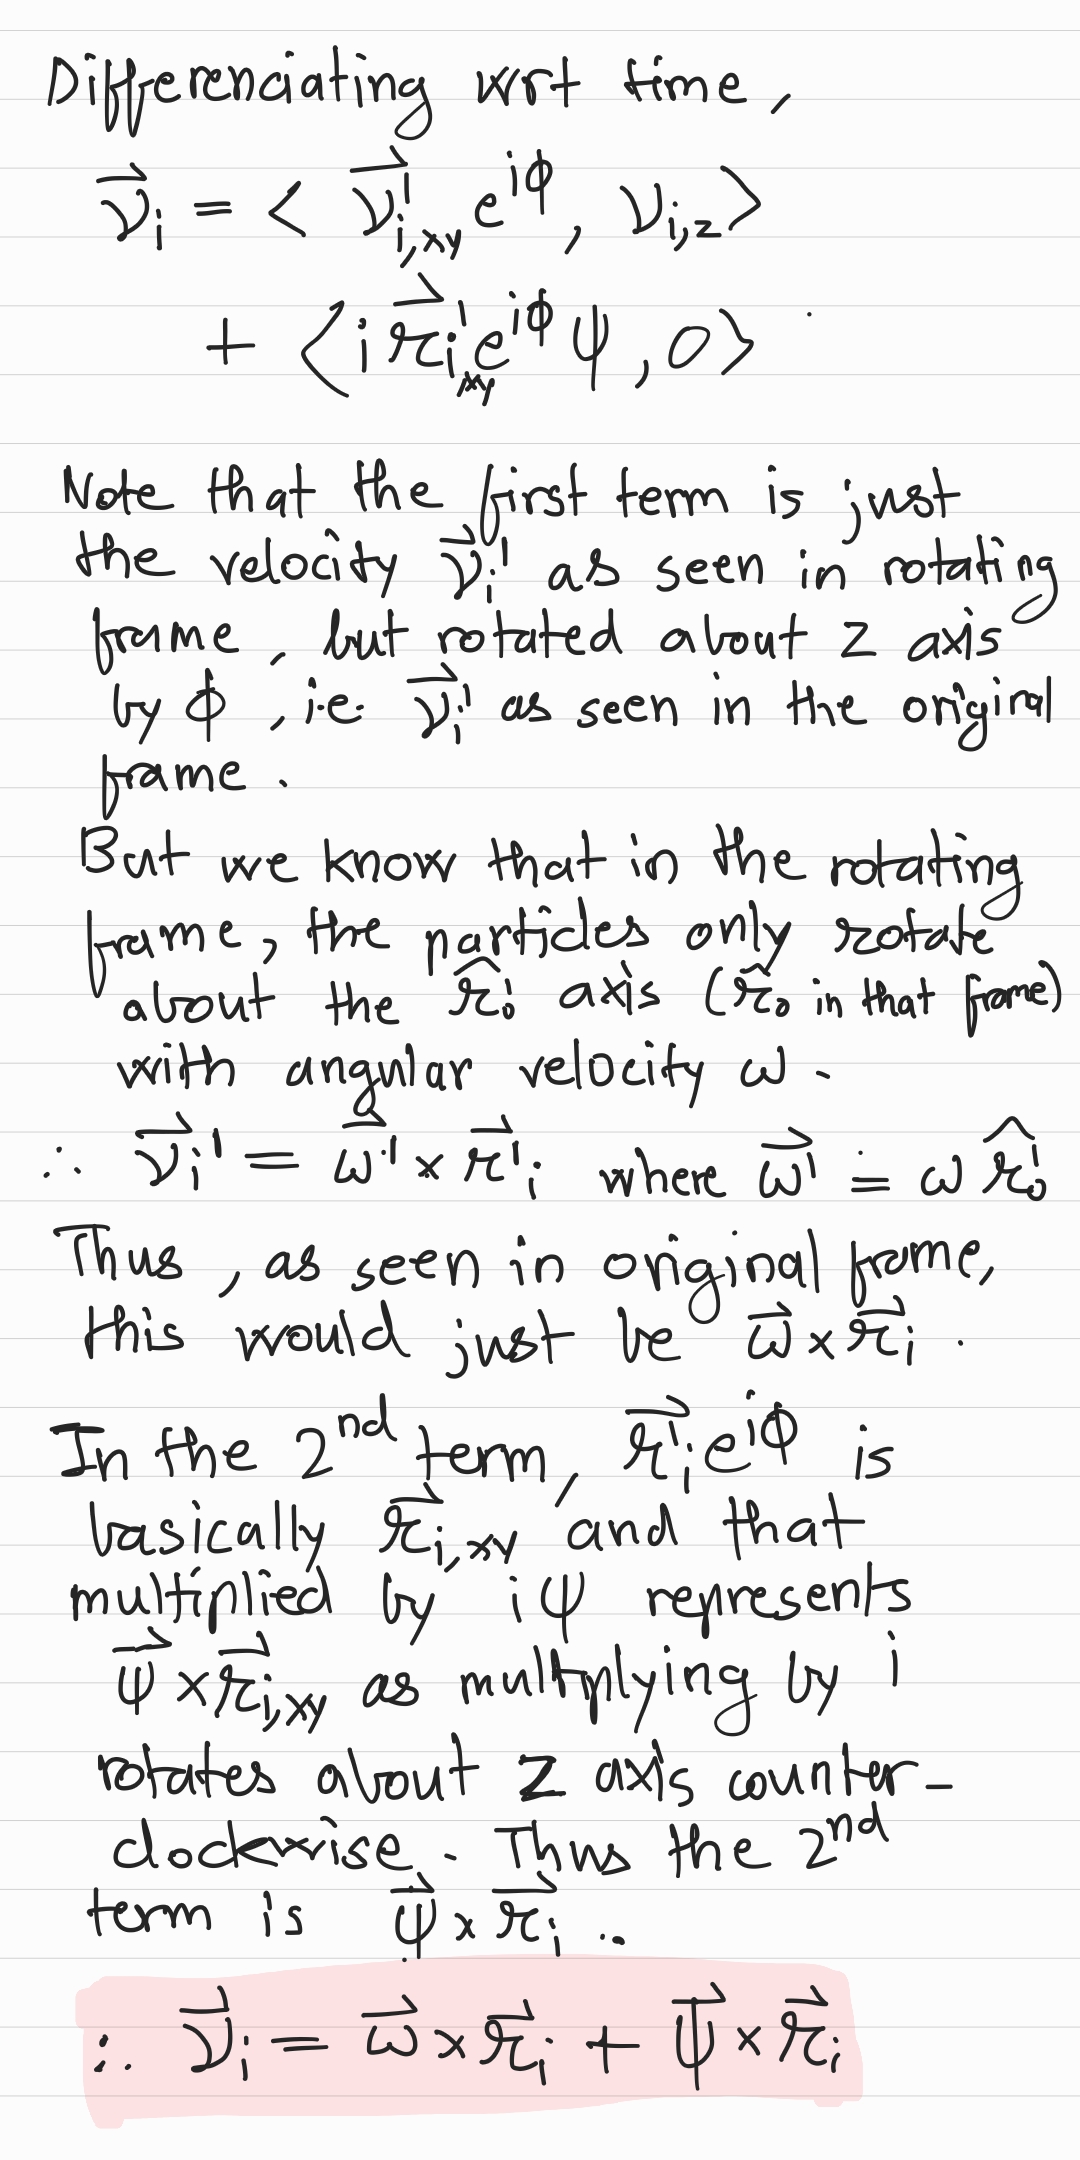 Differenciating wrt time,
v⃗ᵢ = < v⃗'ᵢ,xy e^{iφ}, vᵢ,z >
+ < i r⃗'ᵢ,xy e^{iφ} ψ, 0 >
Note that the first term is just
the velocity v⃗ᵢ' as seen in rotating
frame, but rotated about z axis
by φ, i.e. v⃗ᵢ' as seen in the original
frame.
But we know that in the rotating
frame, the particles only rotate
about the r̂₀' axis (r̂₀ in that frame)
with angular velocity ω.
∴ v⃗ᵢ' = ω⃗' × r⃗'ᵢ where ω⃗' = ω r̂₀'
Thus, as seen in original frame,
this would just be ω⃗ × r⃗ᵢ.
In the 2nd term, r⃗ᵢ' e^{iφ} is
basically r⃗ᵢ,xy and that
multiplied by iψ represents
ψ⃗ × r⃗ᵢ,xy as multiplying by i
rotates about z axis counter-
clockwise. Thus the 2nd
term is ψ⃗ × r⃗ᵢ..
∴ v⃗ᵢ = ω⃗ × r⃗ᵢ + ψ⃗ × r⃗ᵢ